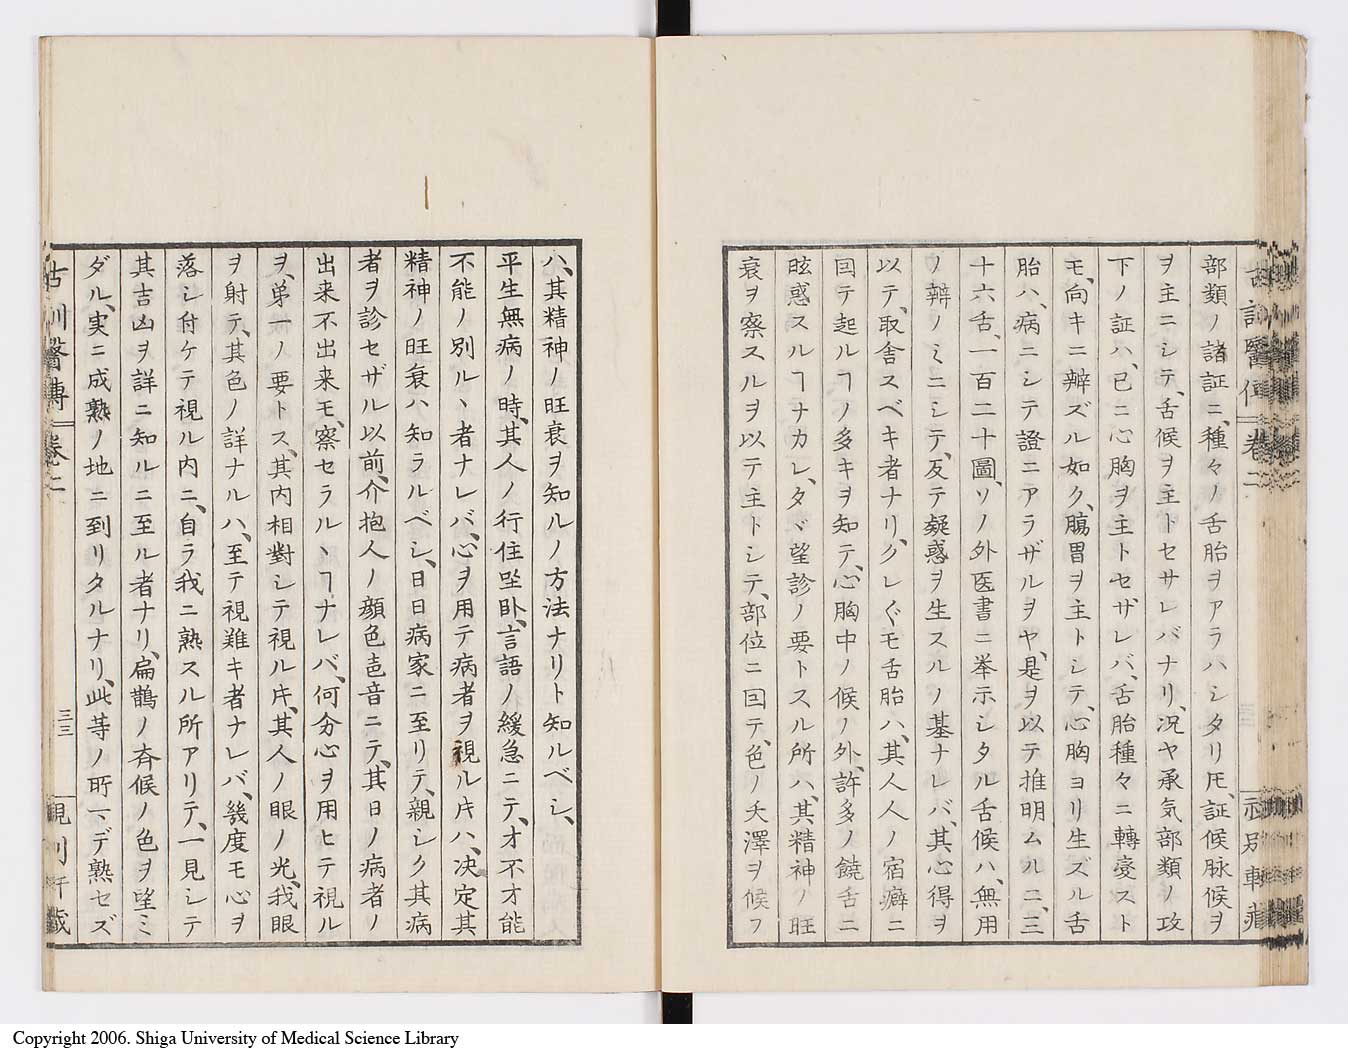 部類ノ諸証ニ、種々ノ舌胎ヲアラハシタリ𪜈、証候脉候ヲ
ヲ主ニシテ、舌候ヲ主トセサレバナリ、况ヤ承気部類ノ攻
下ノ証ハ、已ニ心胸ヲ主トセザレバ、舌胎種々ニ轉変スト
モ、向キニ辨ズル如ク、膓胃ヲ主トシテ、心胸ヨリ生ズル舌
胎ハ、病ニシテ證ニアラザルヲヤ、是ヲ以テ推明ムルニ、三
十六舌、一百二十圖、ソノ外医書ニ挙示シタル舌候ハ、無用
ノ辨ノミニシテ、反テ疑惑ヲ生スルノ基ナレバ、其心得ヲ
以テ、取舎スベキ者ナリ、クレ〲モ舌胎ハ、其人人ノ宿癖ニ
回テ起ルヿノ多キヲ知テ、心胸中ノ候ノ外、許多ノ饒舌ニ
眩惑スルヿナカレ、タヾ望診ノ要トスル所ハ、其精神ノ旺
衰ヲ察スルヲ以テ主トシテ、部位ニ回テ、色ノ夭澤ヲ候フ
ハ、其精神ノ旺衰ヲ知ルノ方法ナリト知ルベシ、
平生無病ノ時、其人ノ行住坐卧、言語ノ緩急ニテ、才不才能
不能ノ別ルヽ者ナレバ、心ヲ用テ病者ヲ視ル𪜈ハ、决定其
精神ノ旺衰ハ知ラルベシ、日日病家ニ至リテ、親シク其病
者ヲ診セザル以前、介抱人ノ顔色咅音ニテ、其日ノ病者ノ
出来不出来モ、察セラルヽヿナレバ、何分心ヲ用ヒテ視ル
ヲ、苐一ノ要トス、其内相對シテ視ル𪜈、其人ノ眼ノ光、我眼
ヲ射テ、其色ノ詳ナルハ、至テ視難キ者ナレバ、幾度モ心ヲ
落シ付ケテ視ル内ニ、自ラ我ニ熟スル所アリテ、一見シテ
其吉凶ヲ詳ニ知ルニ至ル者ナリ、扁鵲ノ斉候ノ色ヲ望ミ
ダル、実ニ成熟ノ地ニ到リタルナリ、此等ノ所マデ熟セズ
古訓醫傳 卷二
三三